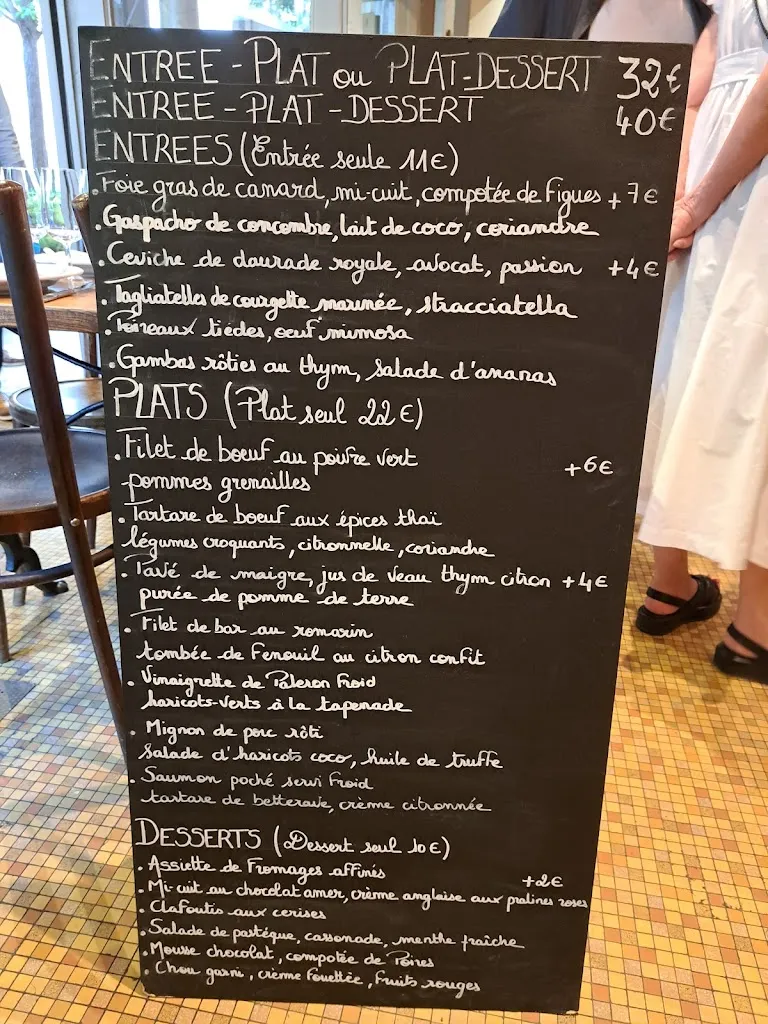 ENTREE - PLAT ou PLAT-DESSERT 32€
ENTREE - PLAT - DESSERT 40€
ENTREES (Entrée seule 11€)
. Foie gras de canard, mi-cuit, compotée de Figues + 7€
. Gaspacho de concombre, lait de coco, coriandre
. Ceviche de daurade royale, avocat, passion + 4€
. Tagliatelles de courgette marinée, stracciatella
. Poireaux tiédes, oeuf mimosa
. Gambas rôties au thym, Salade d'ananas
PLATS (Plat seul 22€)
. Filet de boeuf au poivre vert + 6€
pommes grenailles
. Tartare de boeuf aux épices thaï
légumes croquants, citronnelle, coriandre
. Pavé de maigre, jus de veau thym citron + 4€
purée de pomme de terre
. Filet de bar au romarin
tombée de Fenouil au citron confit
. Vinaigrette de Paleron Froid
haricots-verts à la tapenade
. Mignon de porc rôti
Salade d'haricots coco, huile de truffe
. Saumon poché servi Froid
tartare de betterave, crème citronnée
DESSERTS (Dessert seul 10€)
. Assiette de Fromages affinés +2€
. Mi-cuit au chocolat amer, crème anglaise aux pralines roses
. Clafoutis aux cerises
. Salade de pastéque, cassonade, menthe fraîche
. Mousse chocolat, compotée de Poires
. Chou garni, crème Fouettée, Fruits rouges